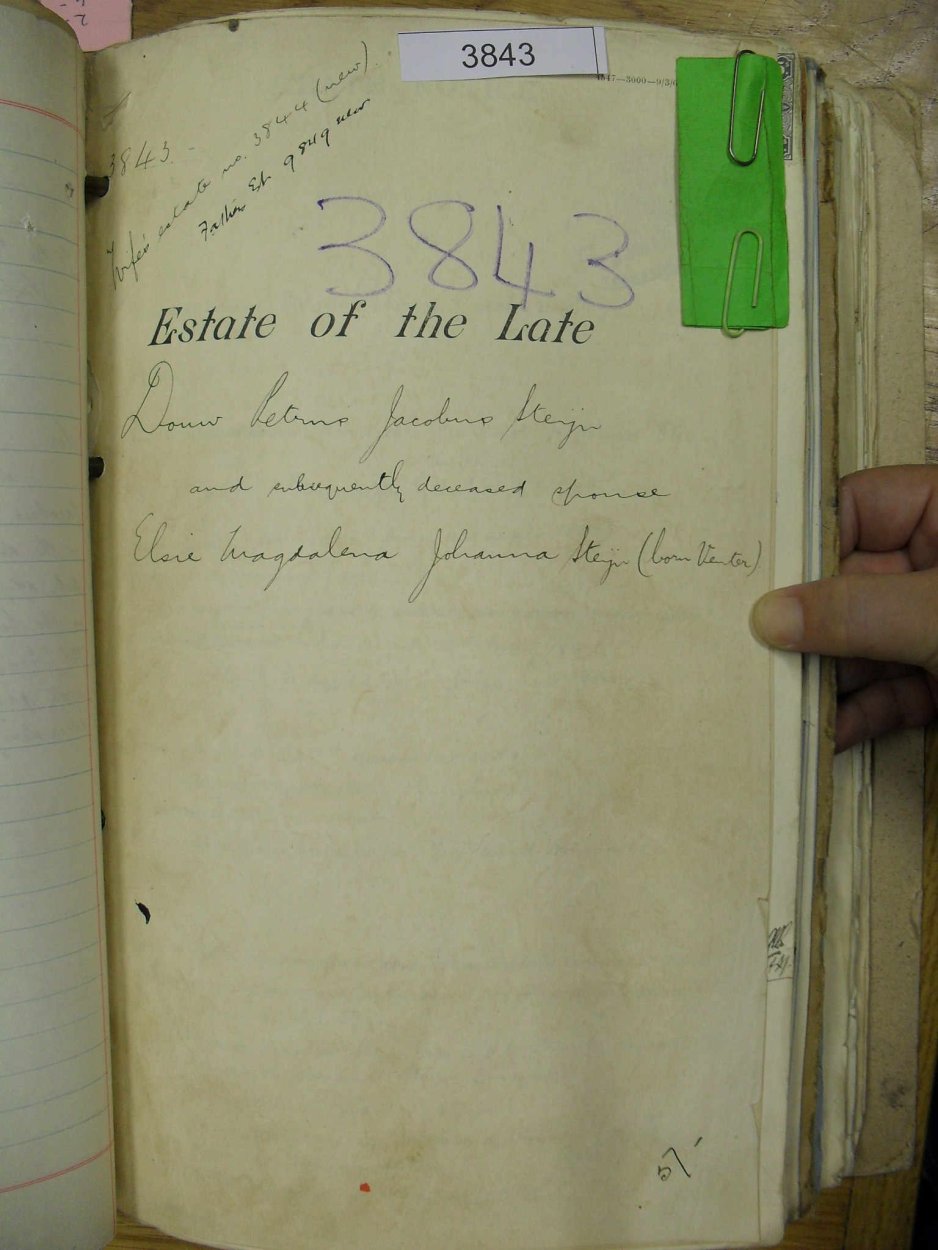 3843
3843.
Wife's estate no. 3844 (new).
Father Est. 9849 new
3843
Estate of the Late
Douw Petrus Jacobus Steijn
and subsequently deceased spouse
Elsie Magdalena Johanna Steijn (born Venter)